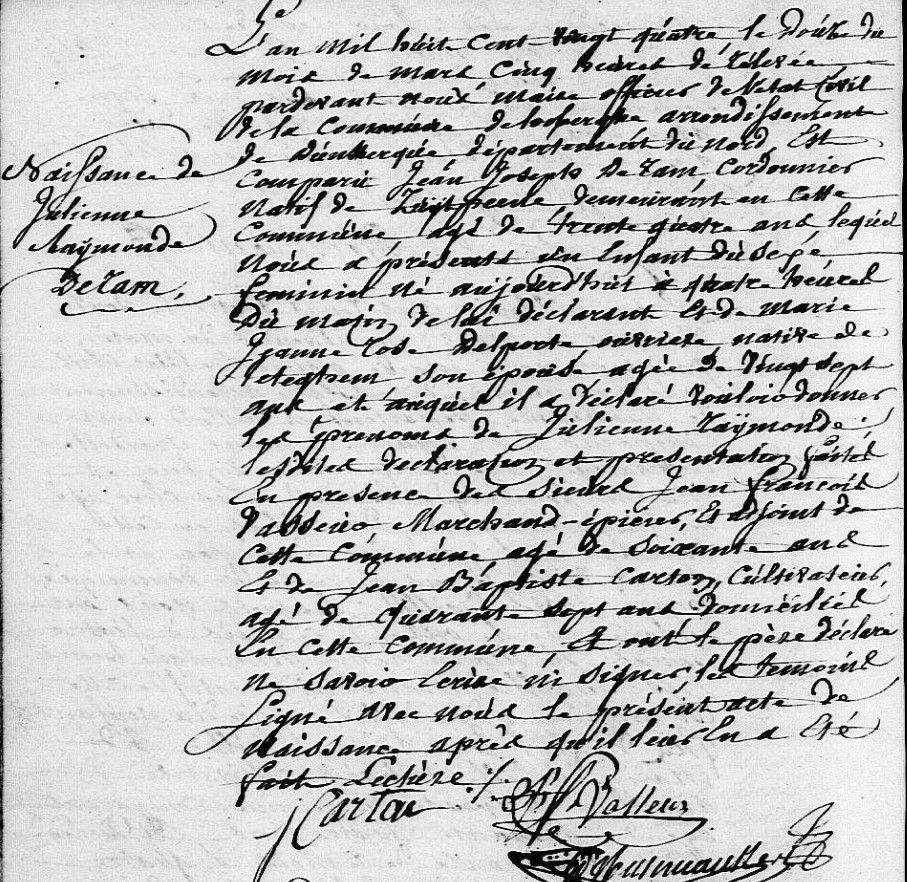 Naissance de
Julienne
Raÿmonde
DeZam.
L'an mil huit Cent Vingt quatre le Douze du
mois de mars Cinq heures de relevée
pardevant nous maire officier de l'état Civil
de la Commune de arrondissement
de Dunkerque département du nord, Est
Comparu Jean Joseph DeZam Cordonnier
natif de demeurant en cette
Commune agé de trente quatre ans, lequel
nous a présenté un Enfant du sexe
feminin né aujourd'hui à quatre heures
Du matin, de lui déclarant Et de marie
Jeanne Rose Delporte ouvriere native de
Teteghem son épouse agée de Vingt sept
ans et auquel il a déclaré vouloir donner
les prenoms de Julienne Raÿmonde;
lesdites declaration et presentation faites
En presence des sieurs Jean François
Marchand-épicier, Et adjoint de
cette Commune agé de soixante ans
Et de Jean Baptiste Carton, Cultivateur,
agé de Quarante sept ans domiciliés
En cette Commune, Et ont le père déclaré
ne savoir Ecrire ni signer, les temoins
signé avec nous le présent acte de
naissance après qu'il leur En a Eté
fait Lecture ./.
J Carton